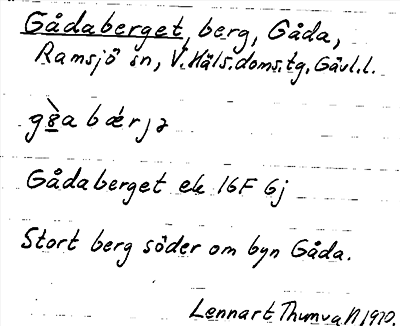 Gådaberget, berg, Gåda,
Ramsjö sn, V.Häls.doms.tg, Gävl.l.
Gådaberget ek 16F 6j
Stort berg söder om byn Gåda.
Lennart Thumvall 1970.